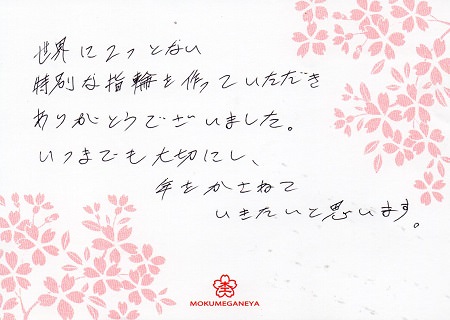 世界に2つとない
特別な指輪を作っていただき
ありがとうございました。
いつまでも大切にし、
年をかさねて
いきたいと思います。
MOKUMEGANEYA